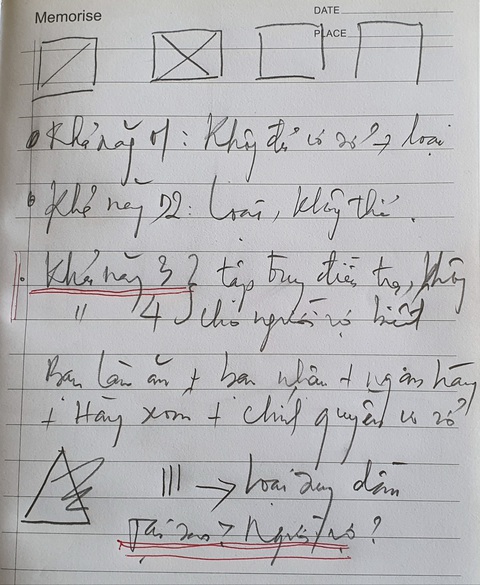 Memorise
DATE
PLACE
Khả năng 01: Không đủ cơ sở → loại
Khả năng 02: Loại, không thể.
Khả năng 3 } tập trung điều tra, không
" 4 } cho người nợ biết
Bạn làm ăn + bạn nhân + ngân hàng
+ Hàng xóm + chính quyền cơ sở
||| → Loại suy dần
Tại sao? Người nợ?